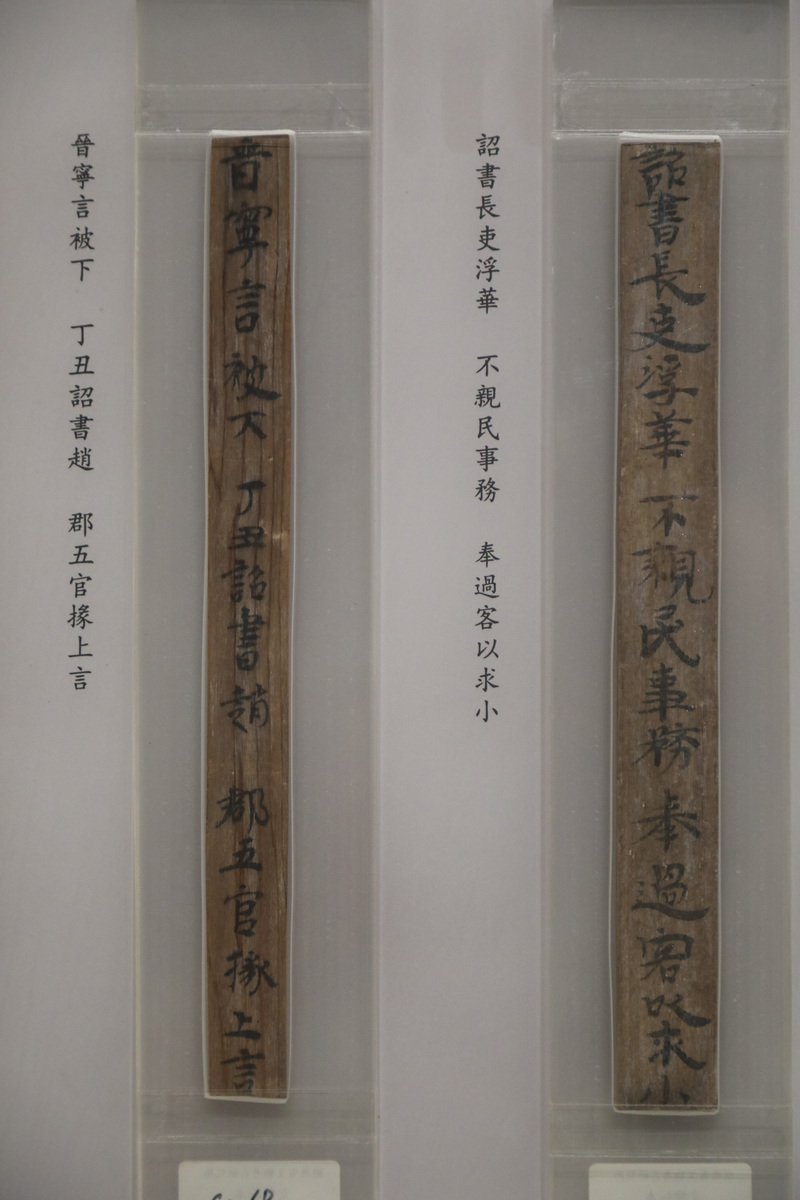 詔書長吏浮華　不親民事務　奉過客以求小
詔書長吏浮華　不親民事務　奉過客以求小
晉寧言被下　丁丑詔書趙　郡五官掾上言
晉寧言被下　丁丑詔書趙　郡五官掾上言